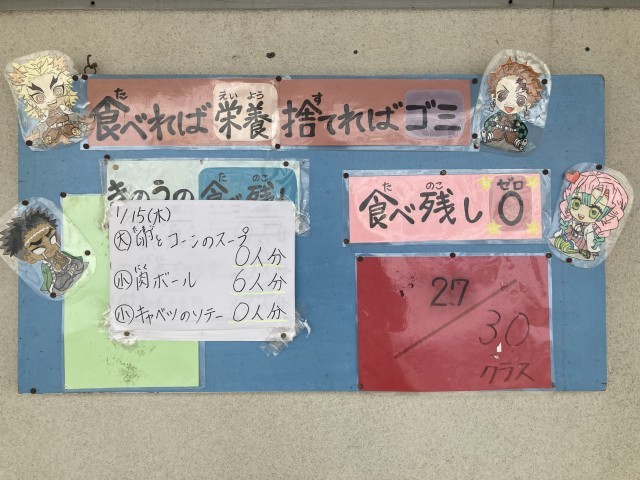 食べれば栄養捨てればゴミ
きのうの食べ残し
1/15(木)
大 卵とコーンのスープ
0人分
小 肉ボール 6人分
小 キャベツのソテー 0人分
食べ残し0
27/30
クラス